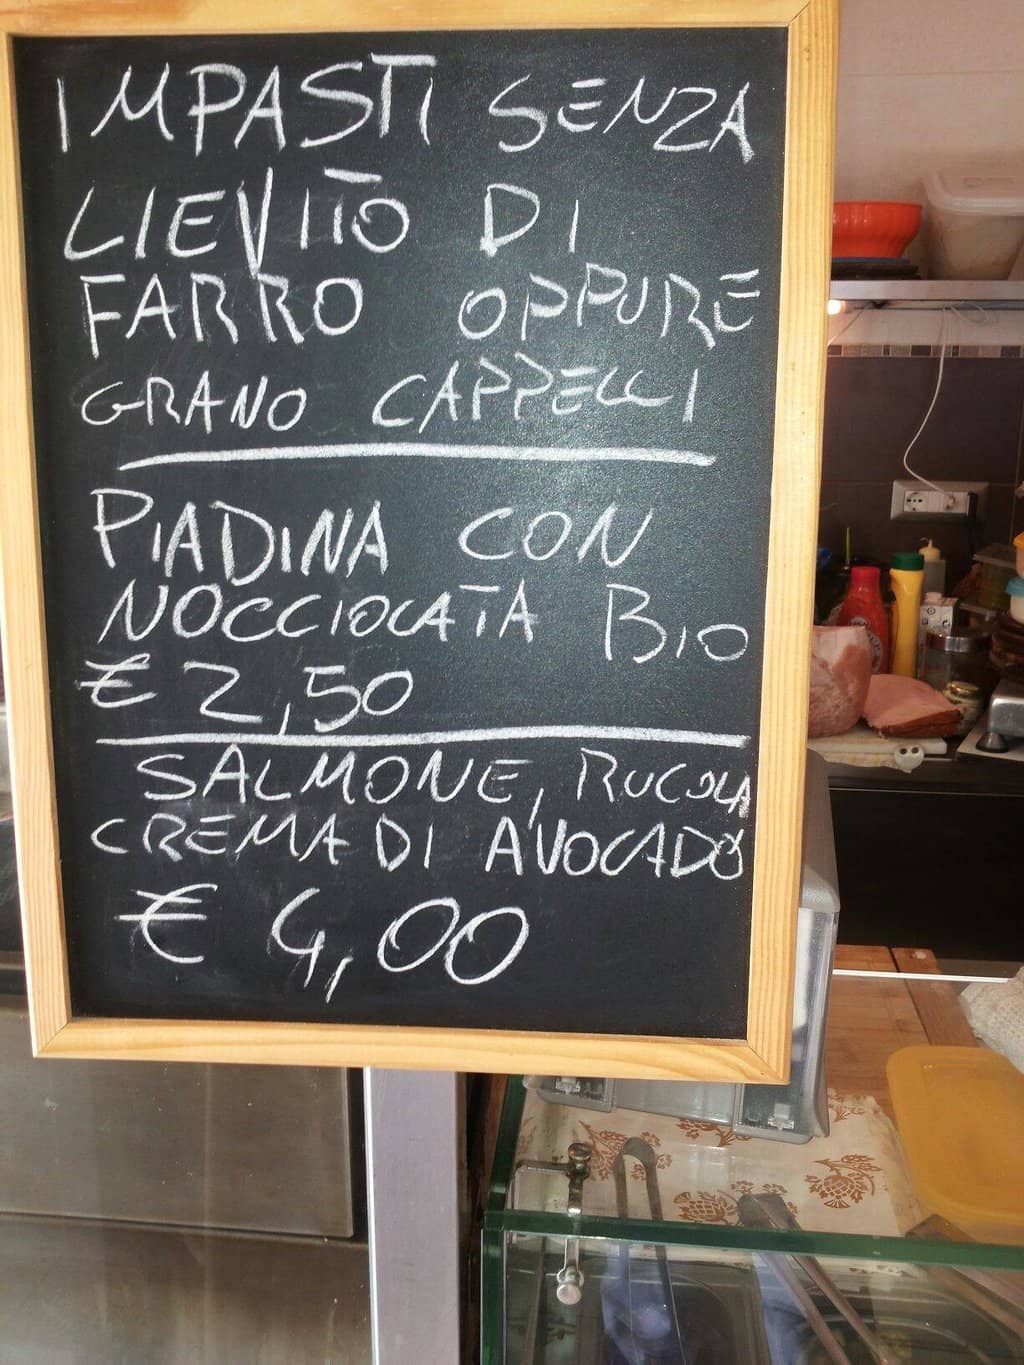 IMPASTI SENZA
LIEVITO DI
FARRO OPPURE
GRANO CAPPELLI
PIADINA CON
NOCCIOLATA BIO
€ 2,50
SALMONE, RUCOLA
CREMA DI AVOCADO
€ 4,00